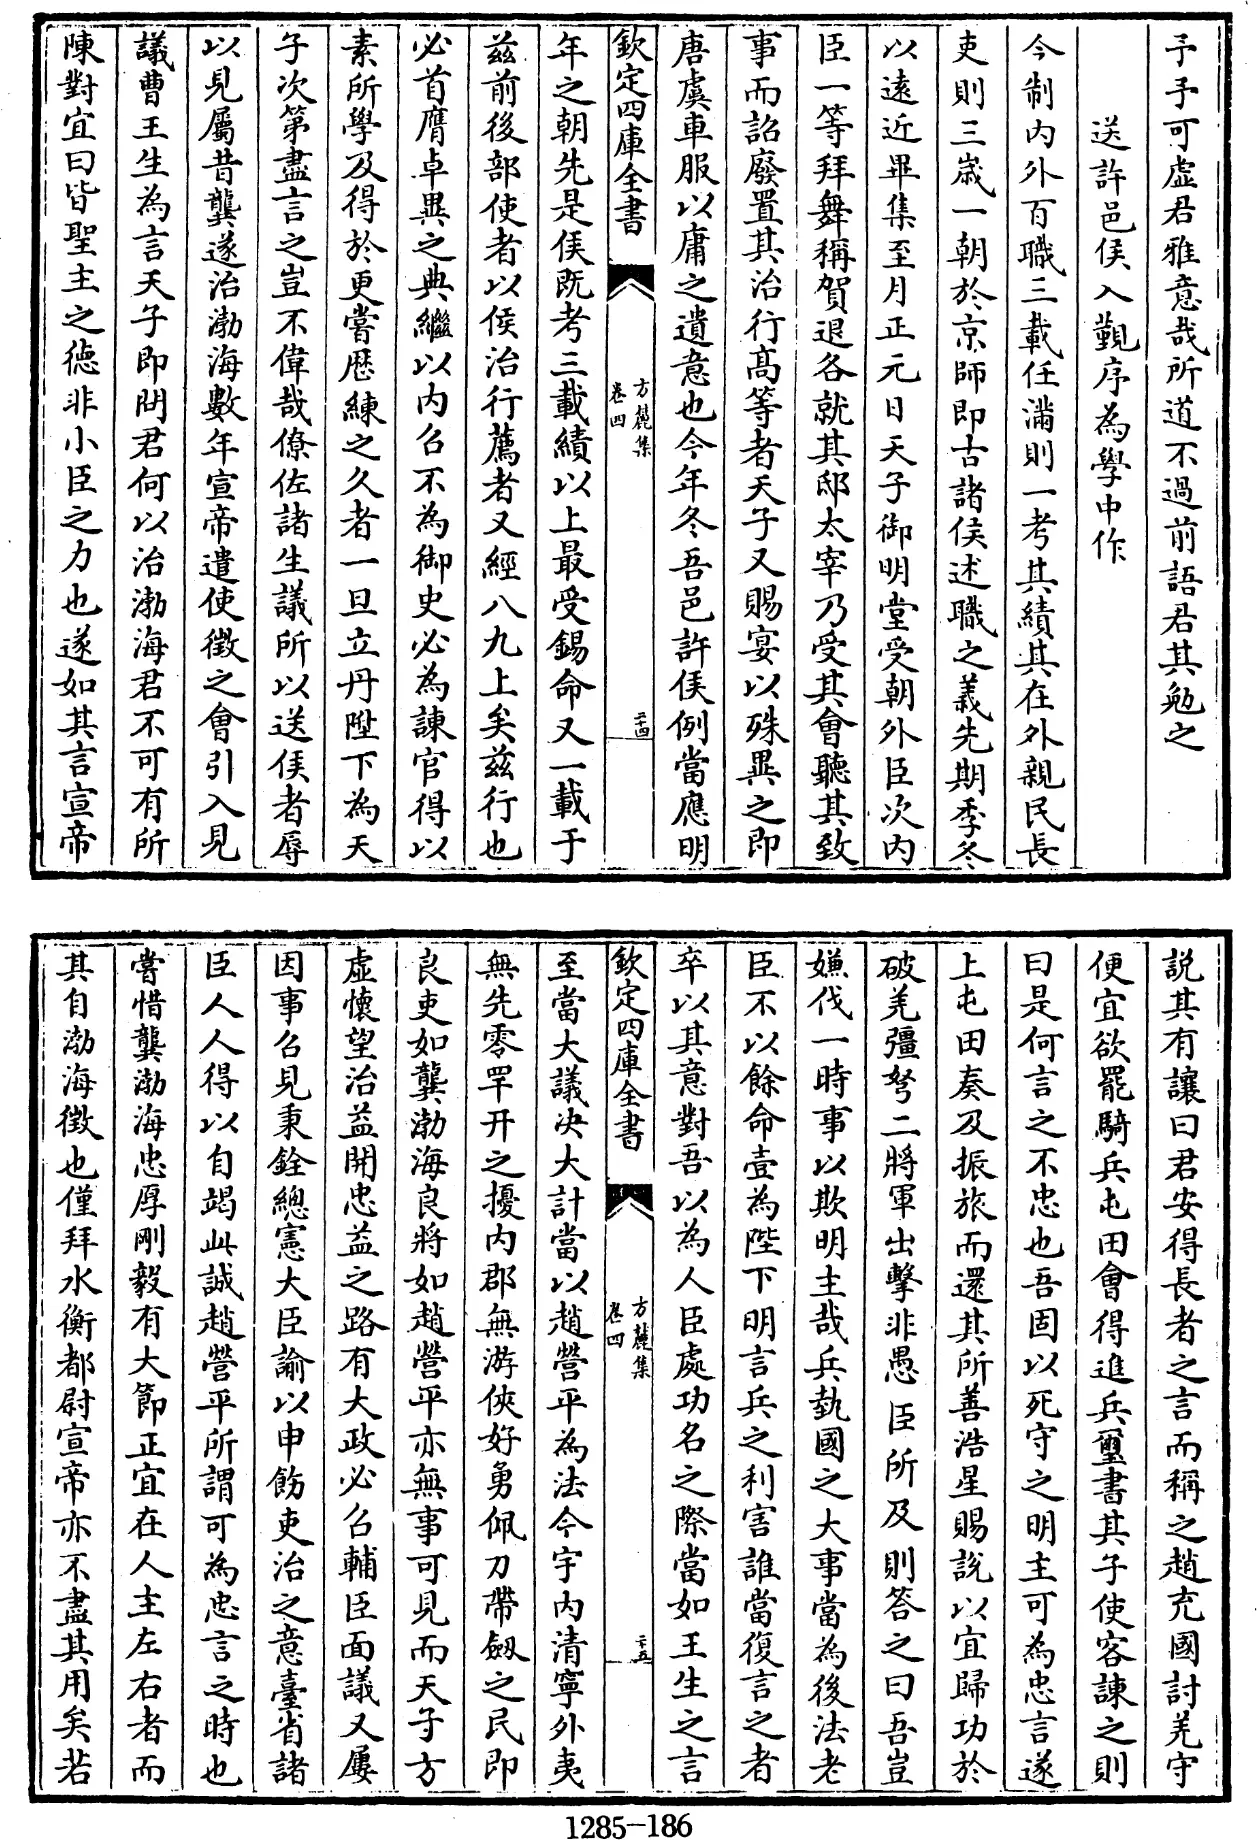 予予可虛君雅意哉所道不過前語君其勉之
送許邑侯入覲序為學中作
今制內外百職三載任滿則一考其績其在外親民長
吏則三歲一朝於京師即古諸侯述職之義先期季冬
以遠近畢集至月正元日天子御明堂受朝外臣次內
臣一等拜舞稱賀退各就其邸太宰乃受其會聽其致
事而詔廢置其治行髙等者天子又賜宴以殊異之即
唐虞車服以庸之遺意也今年冬吾邑許侯例當應明
欽定四庫全書
方麓集
卷四
二十四
年之朝先是侯既考三載績以上最受錫命又一載于
茲前後部使者以侯治行薦者又經八九上矣茲行也
必首膺卓異之典繼以內召不為御史必為諫官得以
素所學及得於更嘗歷練之久者一旦立丹陛下為天
子次第盡言之豈不偉哉僚佐諸生議所以送侯者辱
以見屬昔龔遂治渤海數年宣帝遣使徵之會引入見
議曹王生為言天子即問君何以治渤海君不可有所
陳對宜曰皆聖主之德非小臣之力也遂如其言宣帝
說其有讓曰君安得長者之言而稱之趙充國討羌守
便宜欲罷騎兵屯田會得進兵璽書其子使客諫之則
曰是何言之不忠也吾固以死守之明主可為忠言遂
上屯田奏及振旅而還其所善浩星賜說以宜歸功於
破羌彊弩二將軍出擊非愚臣所及則答之曰吾豈
嫌伐一時事以欺明主哉兵執國之大事當為後法老
臣不以餘命壹為陛下明言兵之利害誰當復言之者
卒以其意對吾以為人臣處功名之際當如王生之言
欽定四庫全書
方麓集
卷四
二十五
至當大議决大計當以趙營平為法今宇內清寧外夷
無先零罕开之擾內郡無游俠好勇佩刀帶劔之民即
良吏如龔渤海良將如趙營平亦無事可見而天子方
虛懷望治益開忠益之路有大政必召輔臣面議又屢
因事召見秉銓總憲大臣諭以申飭吏治之意臺省諸
臣人人得以自竭此誠趙營平所謂可為忠言之時也
嘗惜龔渤海忠厚剛毅有大節正宜在人主左右者而
其自渤海徵也僅拜水衡都尉宣帝亦不盡其用矣若
1285-186